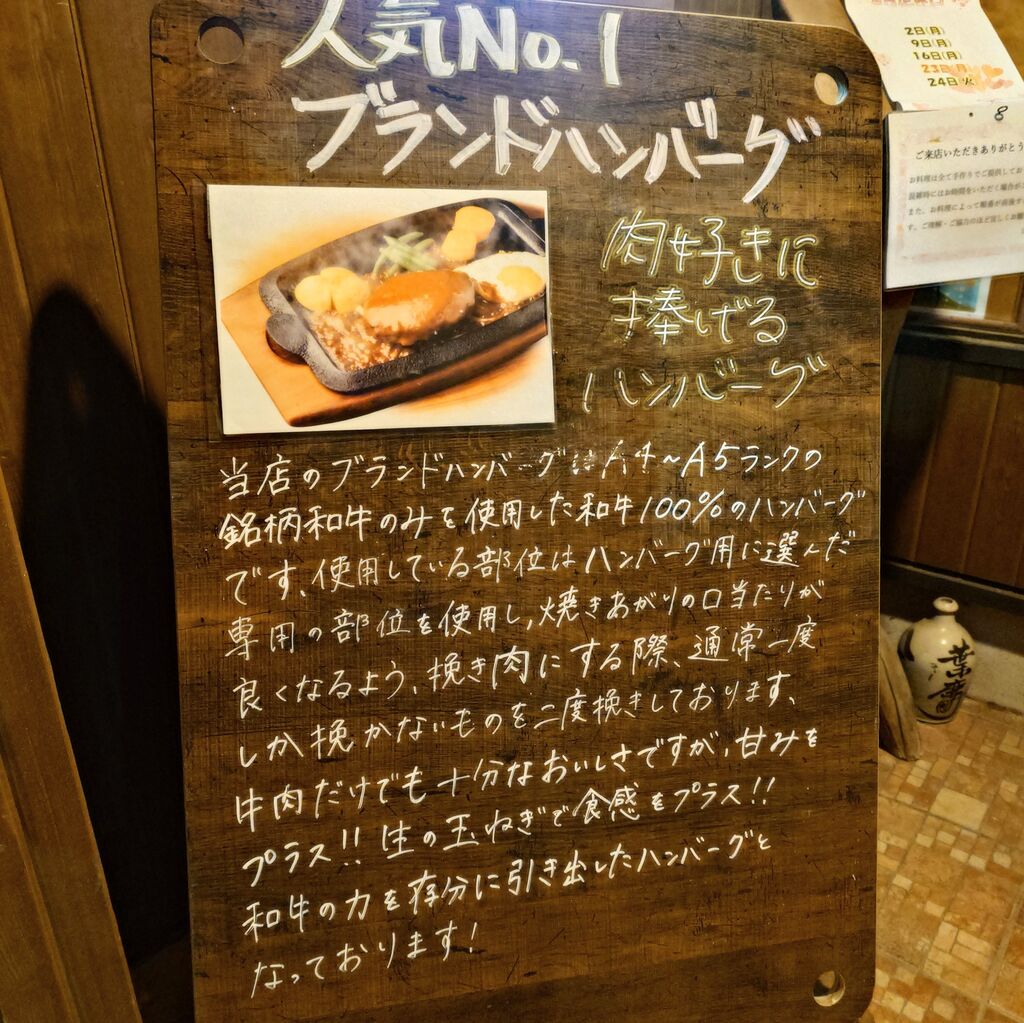 人気No.1
ブランドハンバーグ
肉好きに
捧げる
ハンバーグ
当店のブランドハンバーグはA4～A5ランクの
銘柄和牛のみを使用した和牛100%のハンバーグ
です、使用している部位はハンバーグ用に選んだ
専用の部位を使用し,焼きあがりの口当たりが
良くなるよう、挽き肉にする際、通常一度
しか挽かないものを二度挽きしております、
牛肉だけでも十分なおいしさですが,甘みを
プラス!!生の玉ねぎで食感をプラス!!
和牛の力を存分に引き出したハンバーグと
なっております!
2日(月)
9日(月)
16日(月)
23日(月)
24日(火)
8
ご来店いただきありがとう
お料理は全て手作りでご提供してお
混雑時にはお時間をいただく場合が
また、お料理によって順番が前後す
す。ご理解・ご協力のほど宜しくお願